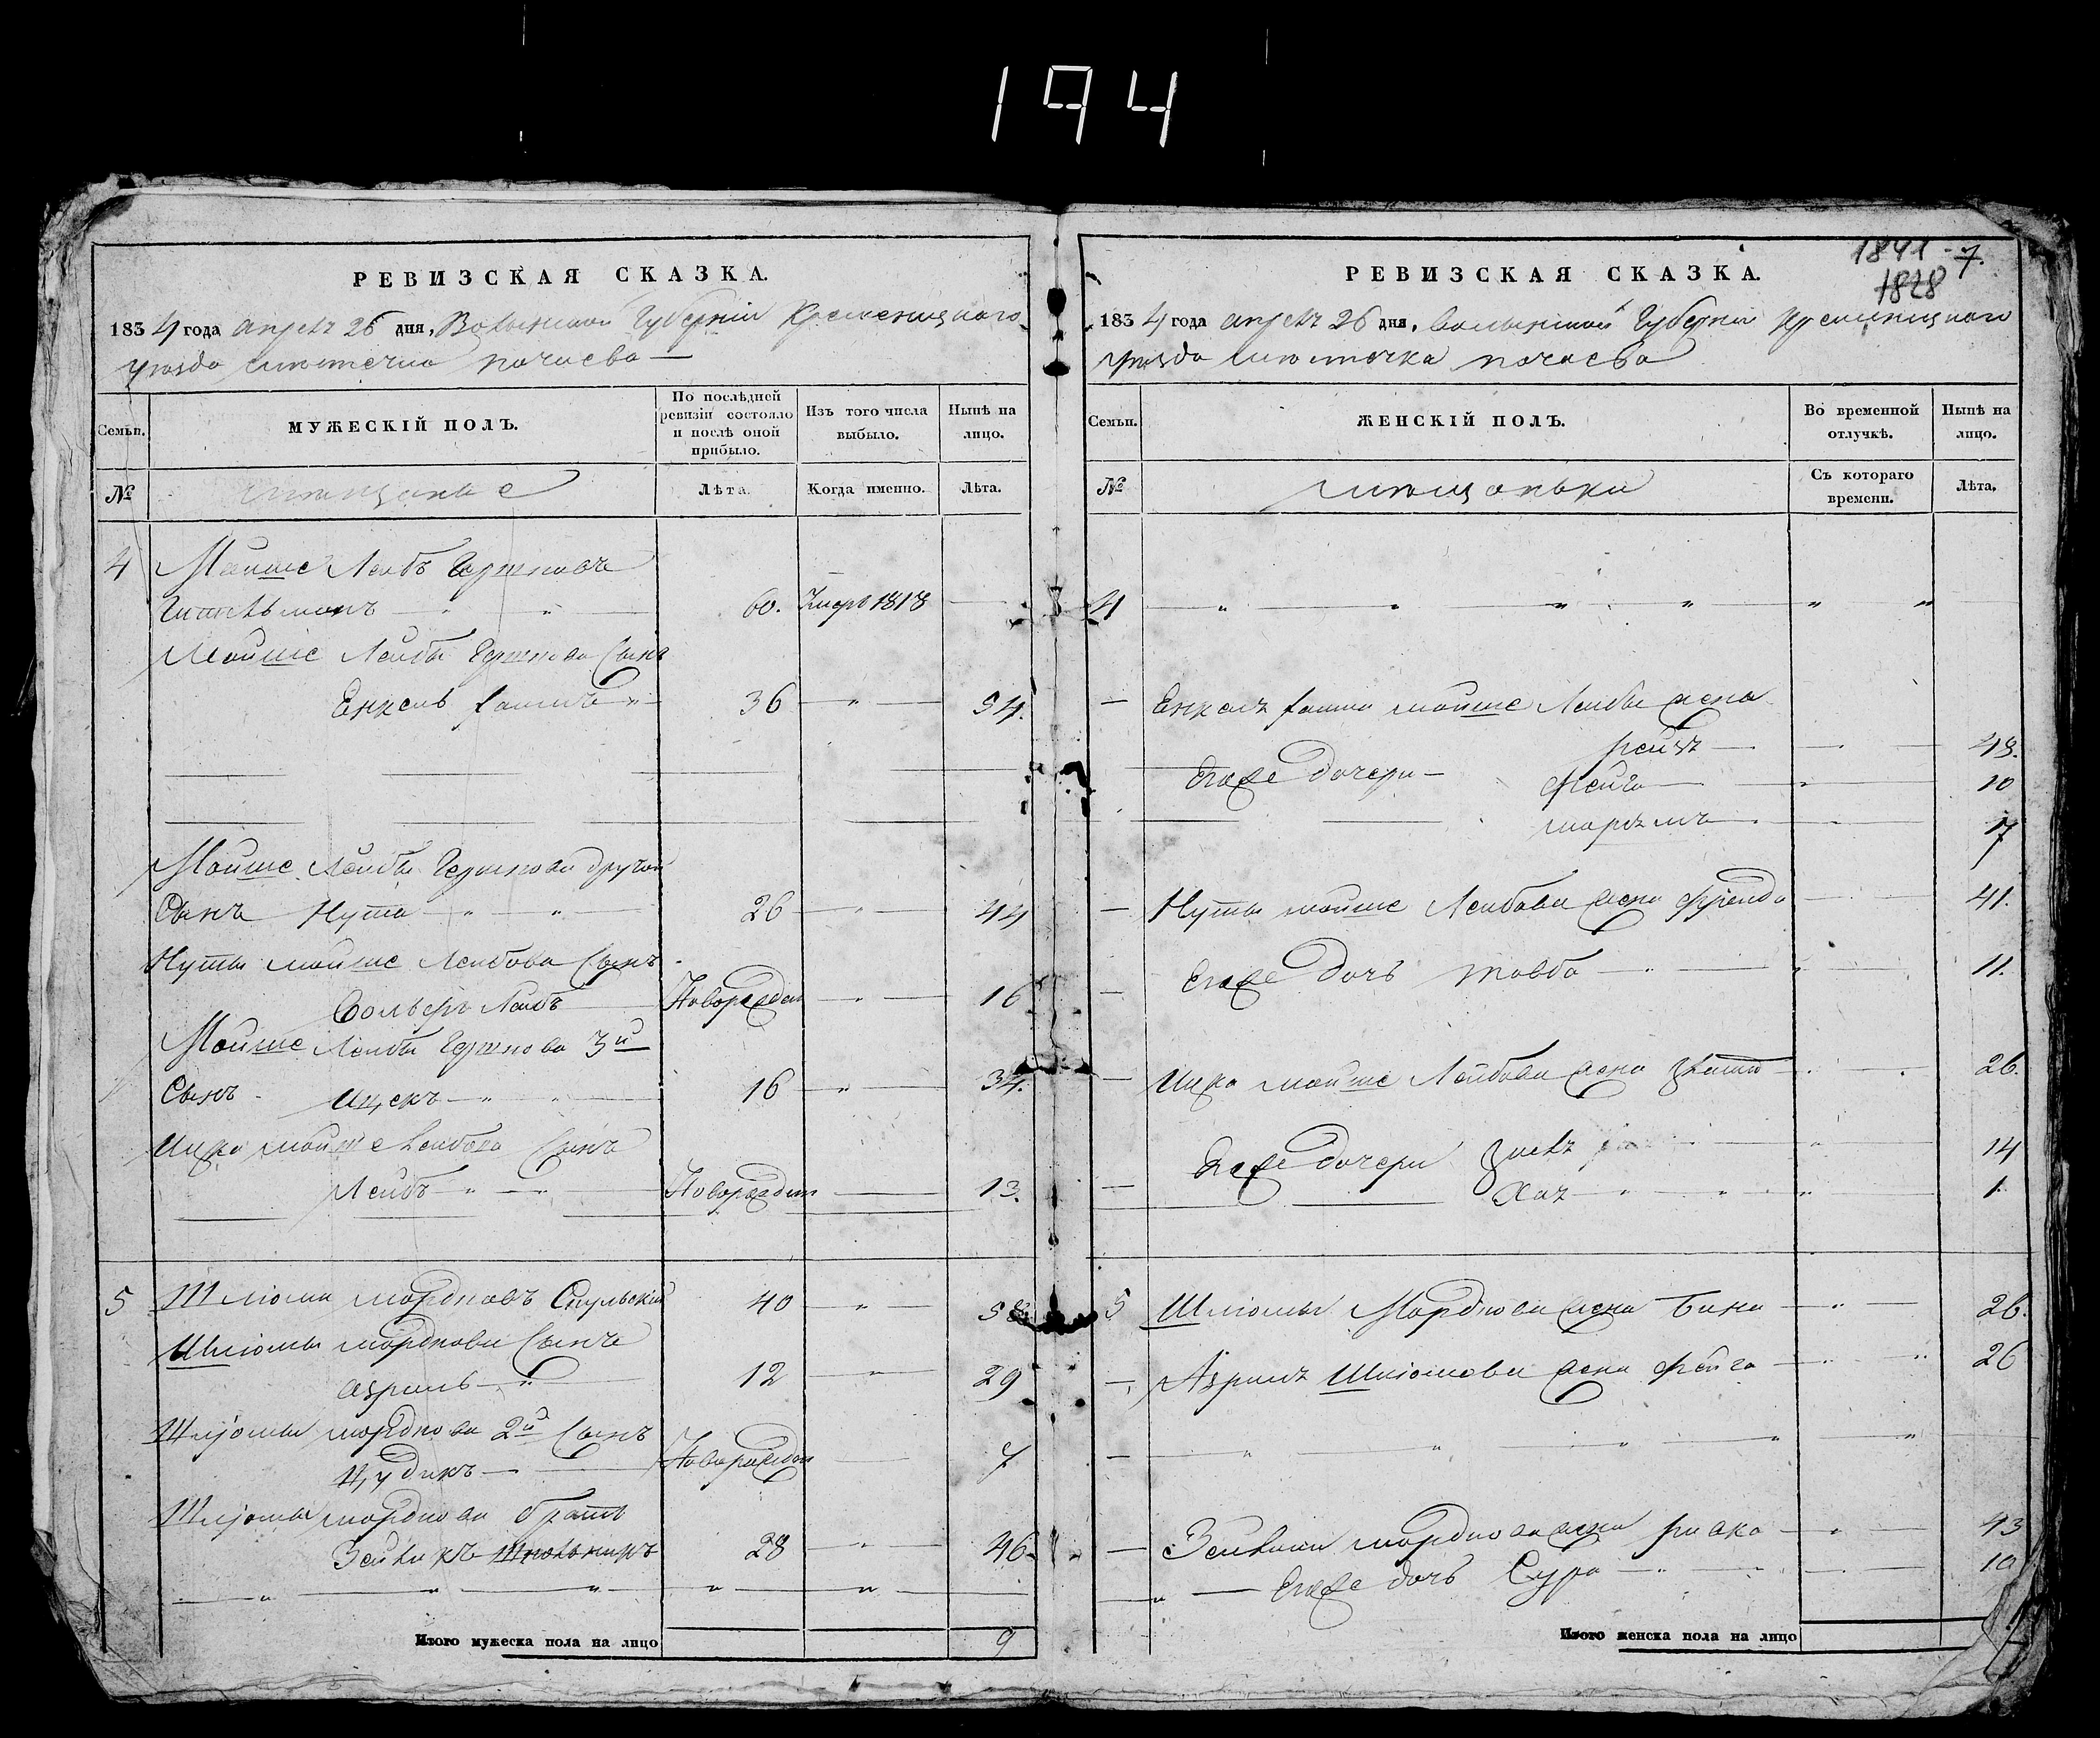 194
РЕВИЗСКАЯ СКАЗКА.
1834 года апреля 26 дня, Волынской Губернии Кременецкого
уезда местечка почаева —
Семьи.
МУЖЕСКІЙ ПОЛЪ.
По послѣдней ревизіи состояло и послѣ оной прибыло.
Изъ того числа выбыло.
Нынѣ на лицо.
№
мещане
Лѣта.
Когда именно.
Лѣта.
4 Мошше Леибъ Гершковъ
60. Умеръ 1818
Мойше Лейбы Гершкова Сынъ
Енкель 36 54.
Мойше Лейбы Гершкова другой
Сынъ Нута 26 44
Нуты мойше Леибова Сынъ
Вольверъ Леибъ Новорожден 16
Мойше Леибы Гершкова 3й
Сынъ Ицекъ 16 34.
Ицка мойше Леибова Сынъ
Лейбъ Новорожден 13.
5 Шліома мордковъ 40 58
Шліомы мордкова Сынъ
азриль 12 29
Шліомы мордкова 2й Сынъ
Цудикъ Новорожден 7
Шліомы мордкова братъ
Зейликъ 28 46
Итого мужеска пола на лицо 9
1841 - 7.
1828
РЕВИЗСКАЯ СКАЗКА.
1834 года апреля 26 дня, Волынской Губерніи Кременецкого
уезда местечка почаева
Семьи.
ЖЕНСКІЙ ПОЛЪ.
Во временной отлучкѣ.
Нынѣ на лицо.
№
мещанки
Съ котораго времени.
Лѣта.
4
Енкеля мойше Леибы жена
рейзя 48.
Егоже дочери — фейга 10
7
Нуты мойше Леибова жена фрейда 41.
Егоже дочь товба 11.
Ицка мойше Лейбова жена 26.
Егоже дочери 14
Хая 1
5 Шліомы Мордкова жена Бина 26.
Азриля Шліомова жена фейга 26
Зейлика мордкова жена ривка 43
Егоже дочь Сура 10
Итого женска пола на лицо